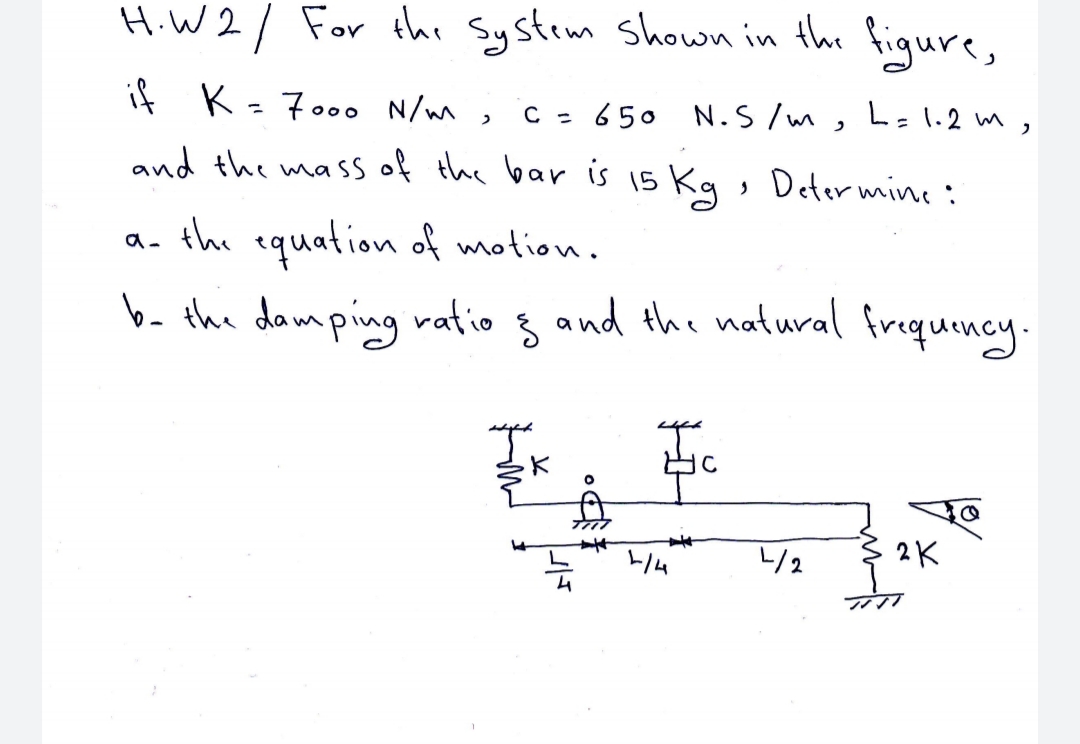 H.W2/ For the system shown in the figure,
if K = 7000 N/m , C = 650 N.S/m , L = 1.2 m ,
and the mass of the bar is 15 Kg , Determine :
a- the equation of motion.
b- the damping ratio ξ and the natural frequency.
K
C
o
θ
L/4
L/4
L/2
2K